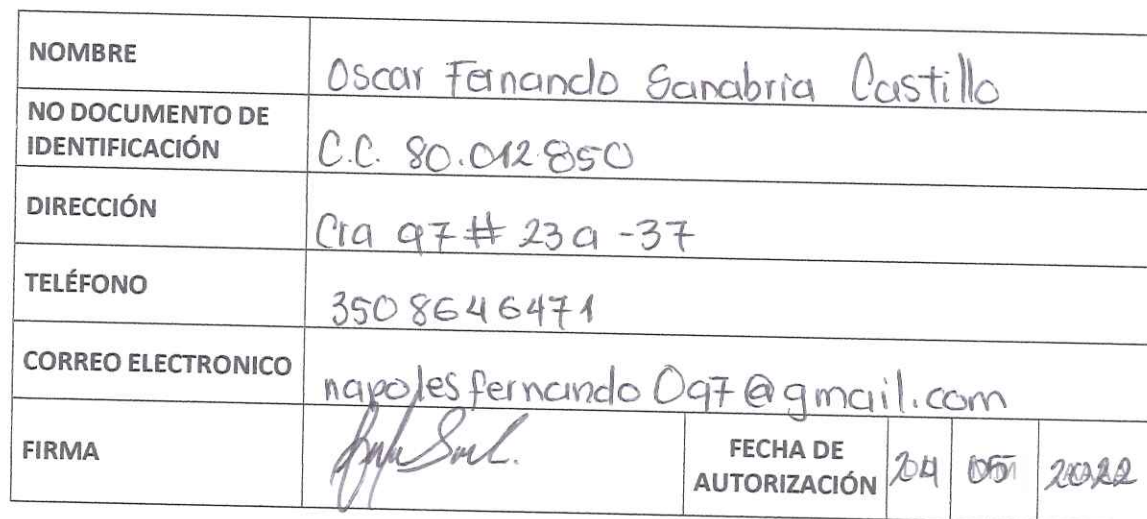 NOMBRE
Oscar Fernando Sanabria Castillo
NO DOCUMENTO DE
IDENTIFICACIÓN
C.C. 80.012.850
DIRECCIÓN
Cra 97 # 23 a - 37
TELÉFONO
350 8646471
CORREO ELECTRONICO
napolesfernando097@gmail.com
FIRMA
FECHA DE
AUTORIZACIÓN
24 05 2022